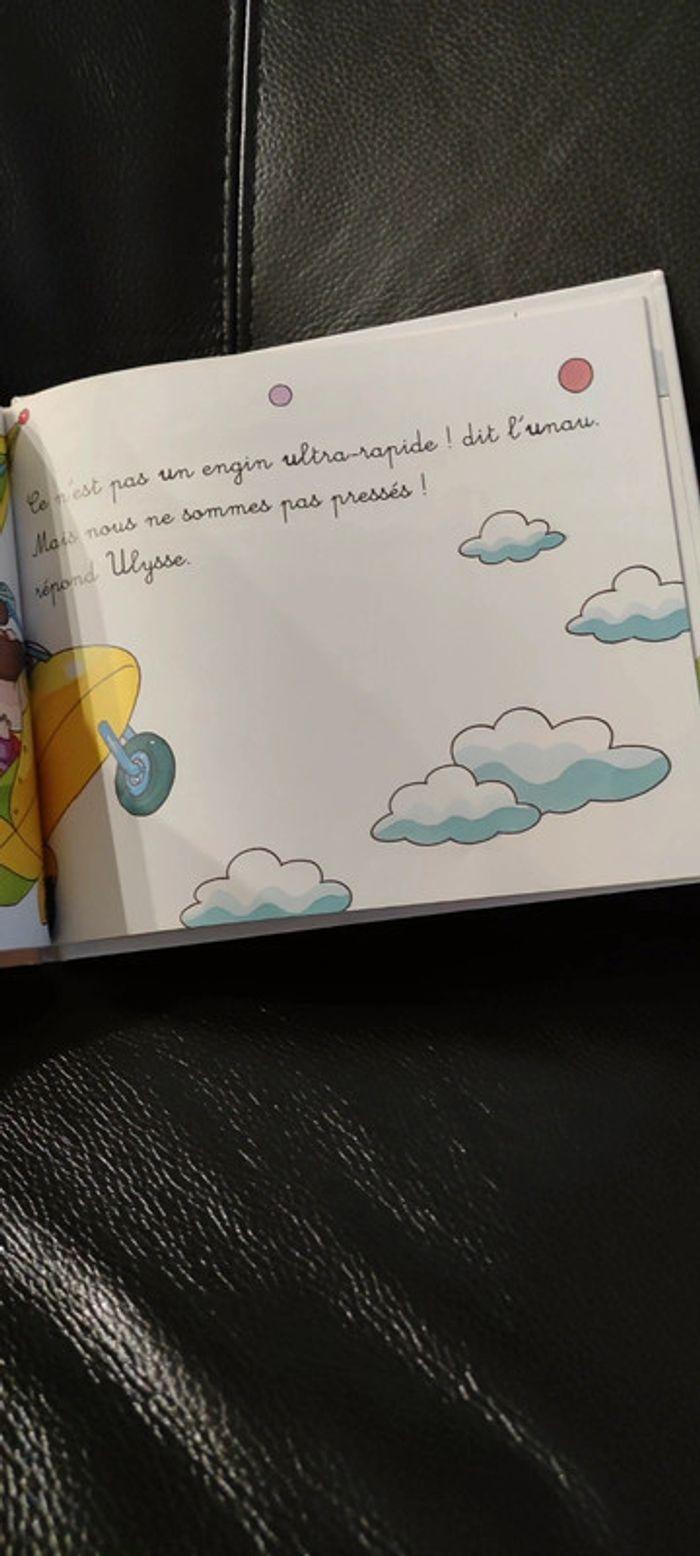 Ce n'est pas un engin ultra-rapide ! dit l'unau.
Mais nous ne sommes pas pressés !
répond Ulysse.